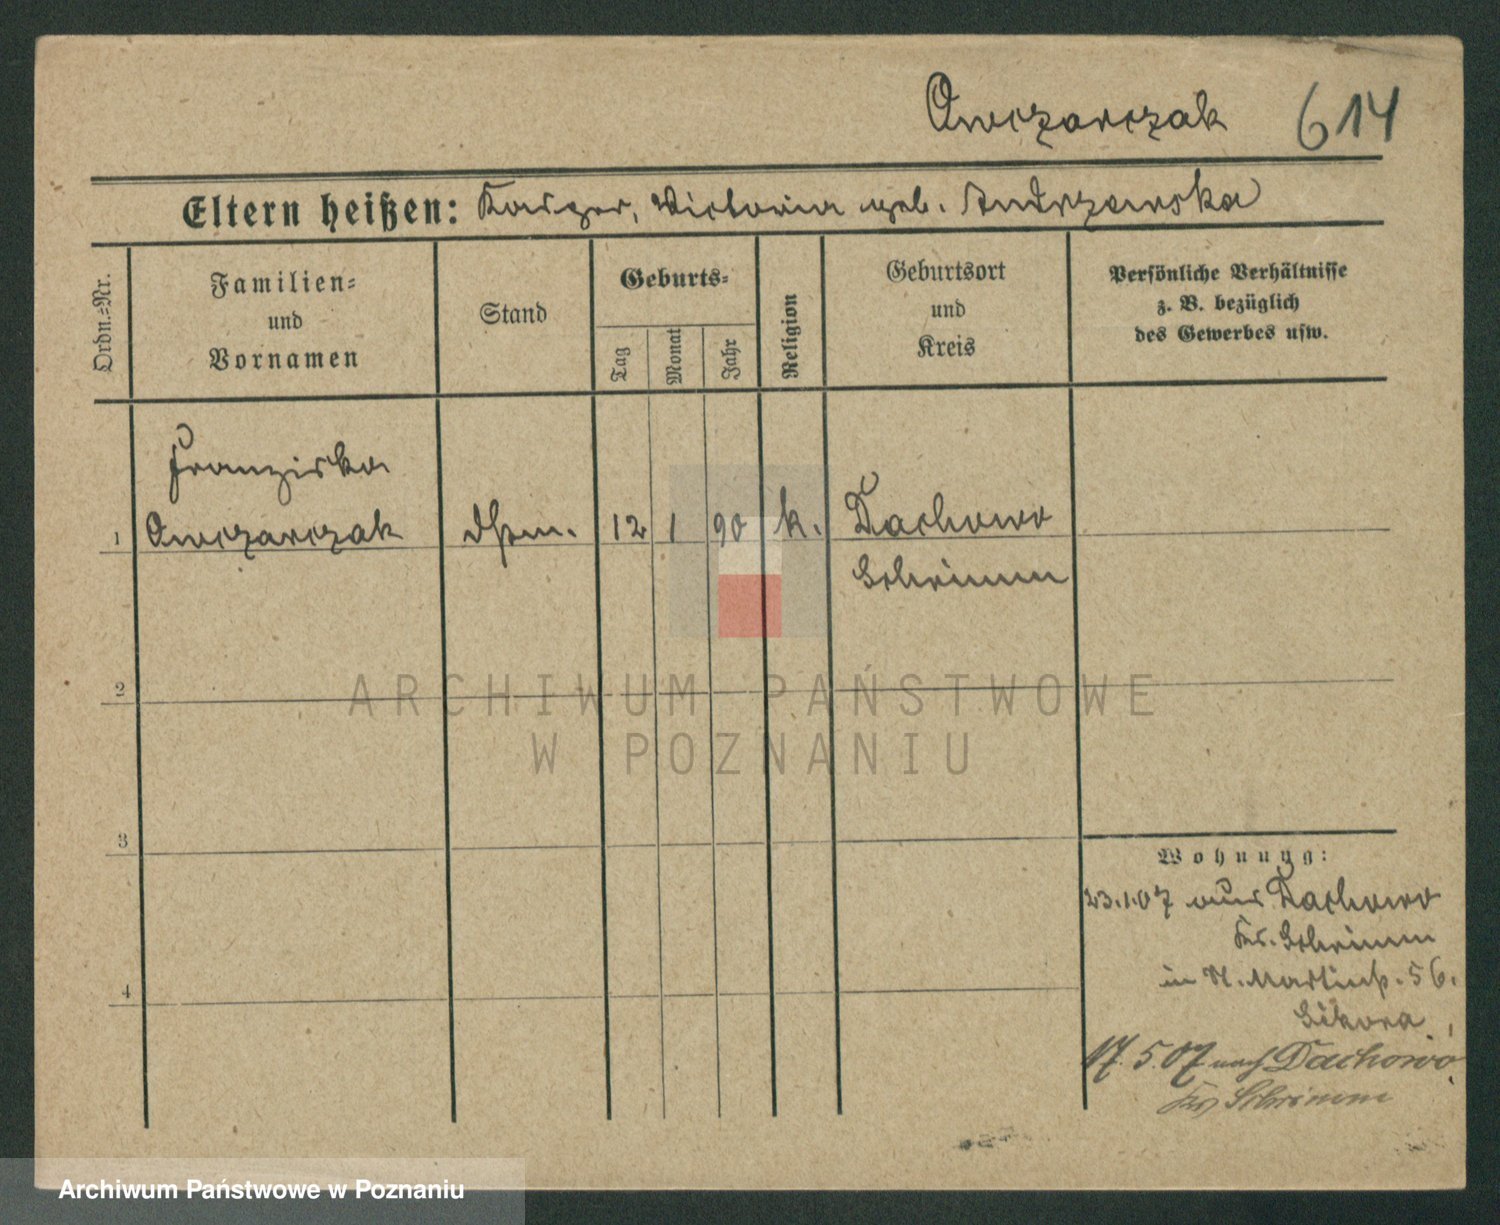 Owczarczak 614
Eltern heißen: Kasper, Victoria geb. Andrzewska
Ordn.-Nr.
Familien-
und
Vornamen
Stand
Geburts-
Tag
Monat
Jahr
Religion
Geburtsort
und
Kreis
Persönliche Verhältnisse
z. B. bezüglich
des Gewerbes usw.
Franziska
1 Owczarczak 12 1 90 k. Dachowo
Schrimm
2
ARCHIWUM PAŃSTWOWE
W POZNANIU
3
Wohnung:
23.1.07 aus Dachowo
Kr. Schrimm
in St. Martinstr. 56.
Sikora
4
17.5.07 nach Dachowo
Kr Schrimm
Archiwum Państwowe w Poznaniu